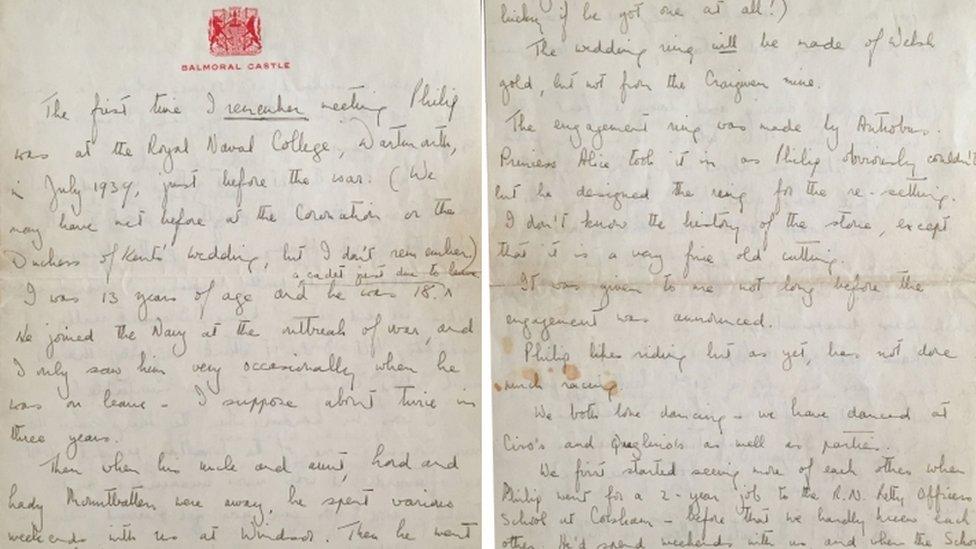 BALMORAL CASTLE
The first time I remember meeting Philip
was at the Royal Naval College, Dartmouth,
in July 1939, just before the war. (We
may have met before at the Coronation or the
Duchess of Kent's wedding, but I don't remember.)
a cadet just due to leave
I was 13 years of age and he was 18. ^
He joined the Navy at the outbreak of war, and
I only saw him very occasionally when he
was on leave - I suppose about twice in
three years.
Then when his uncle and aunt, Lord and
Lady Mountbatten were away, he spent various
weekends with us at Windsor. Then he went
lucky if he got one at all!)
The wedding ring will be made of Welsh
gold, but not from the Craigwen mine.
The engagement ring was made by Antrobus.
Princess Alice took it in as Philip obviously couldn't
but he designed the ring for the re-setting.
I don't know the history of the stone, except
that it is a very fine old cutting.
It was given to me not long before the
engagement was announced.
Philip likes riding but as yet, has not done
much racing.
We both love dancing - we have danced at
Ciro's and Quaglino's as well as parties.
We first started seeing more of each other when
Philip went for a 2-year job to the R.N. Petty Officers
School at Corsham - before that we hardly knew each
other. He'd spend weekends with us and when the School